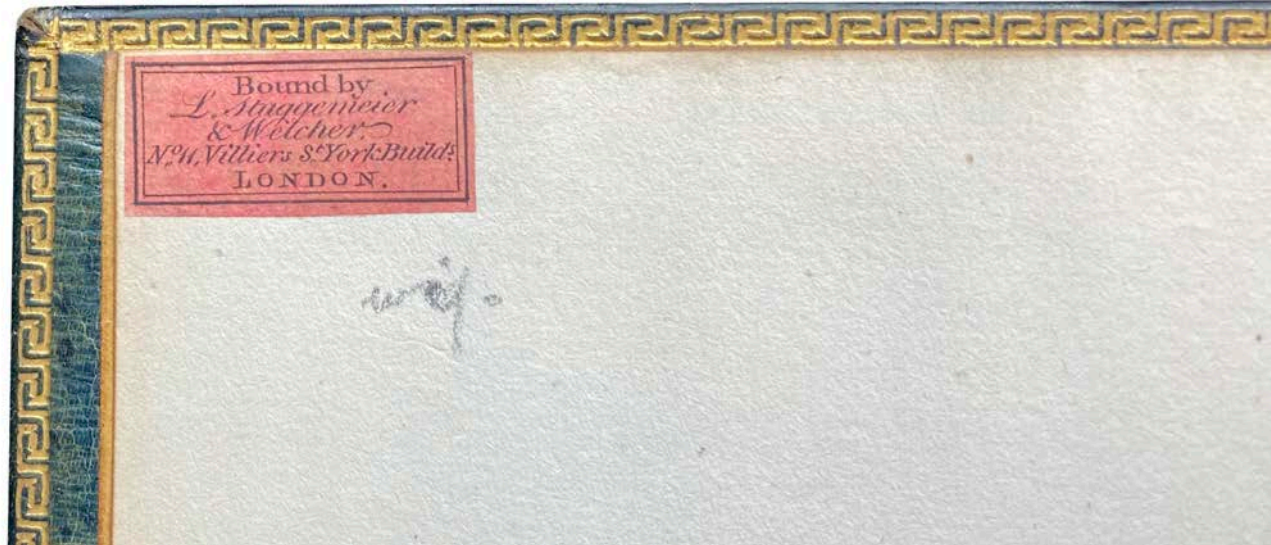 Bound by
L. Staggemeier
& Welcher.
No. 11, Villiers St. York Builds.
LONDON.